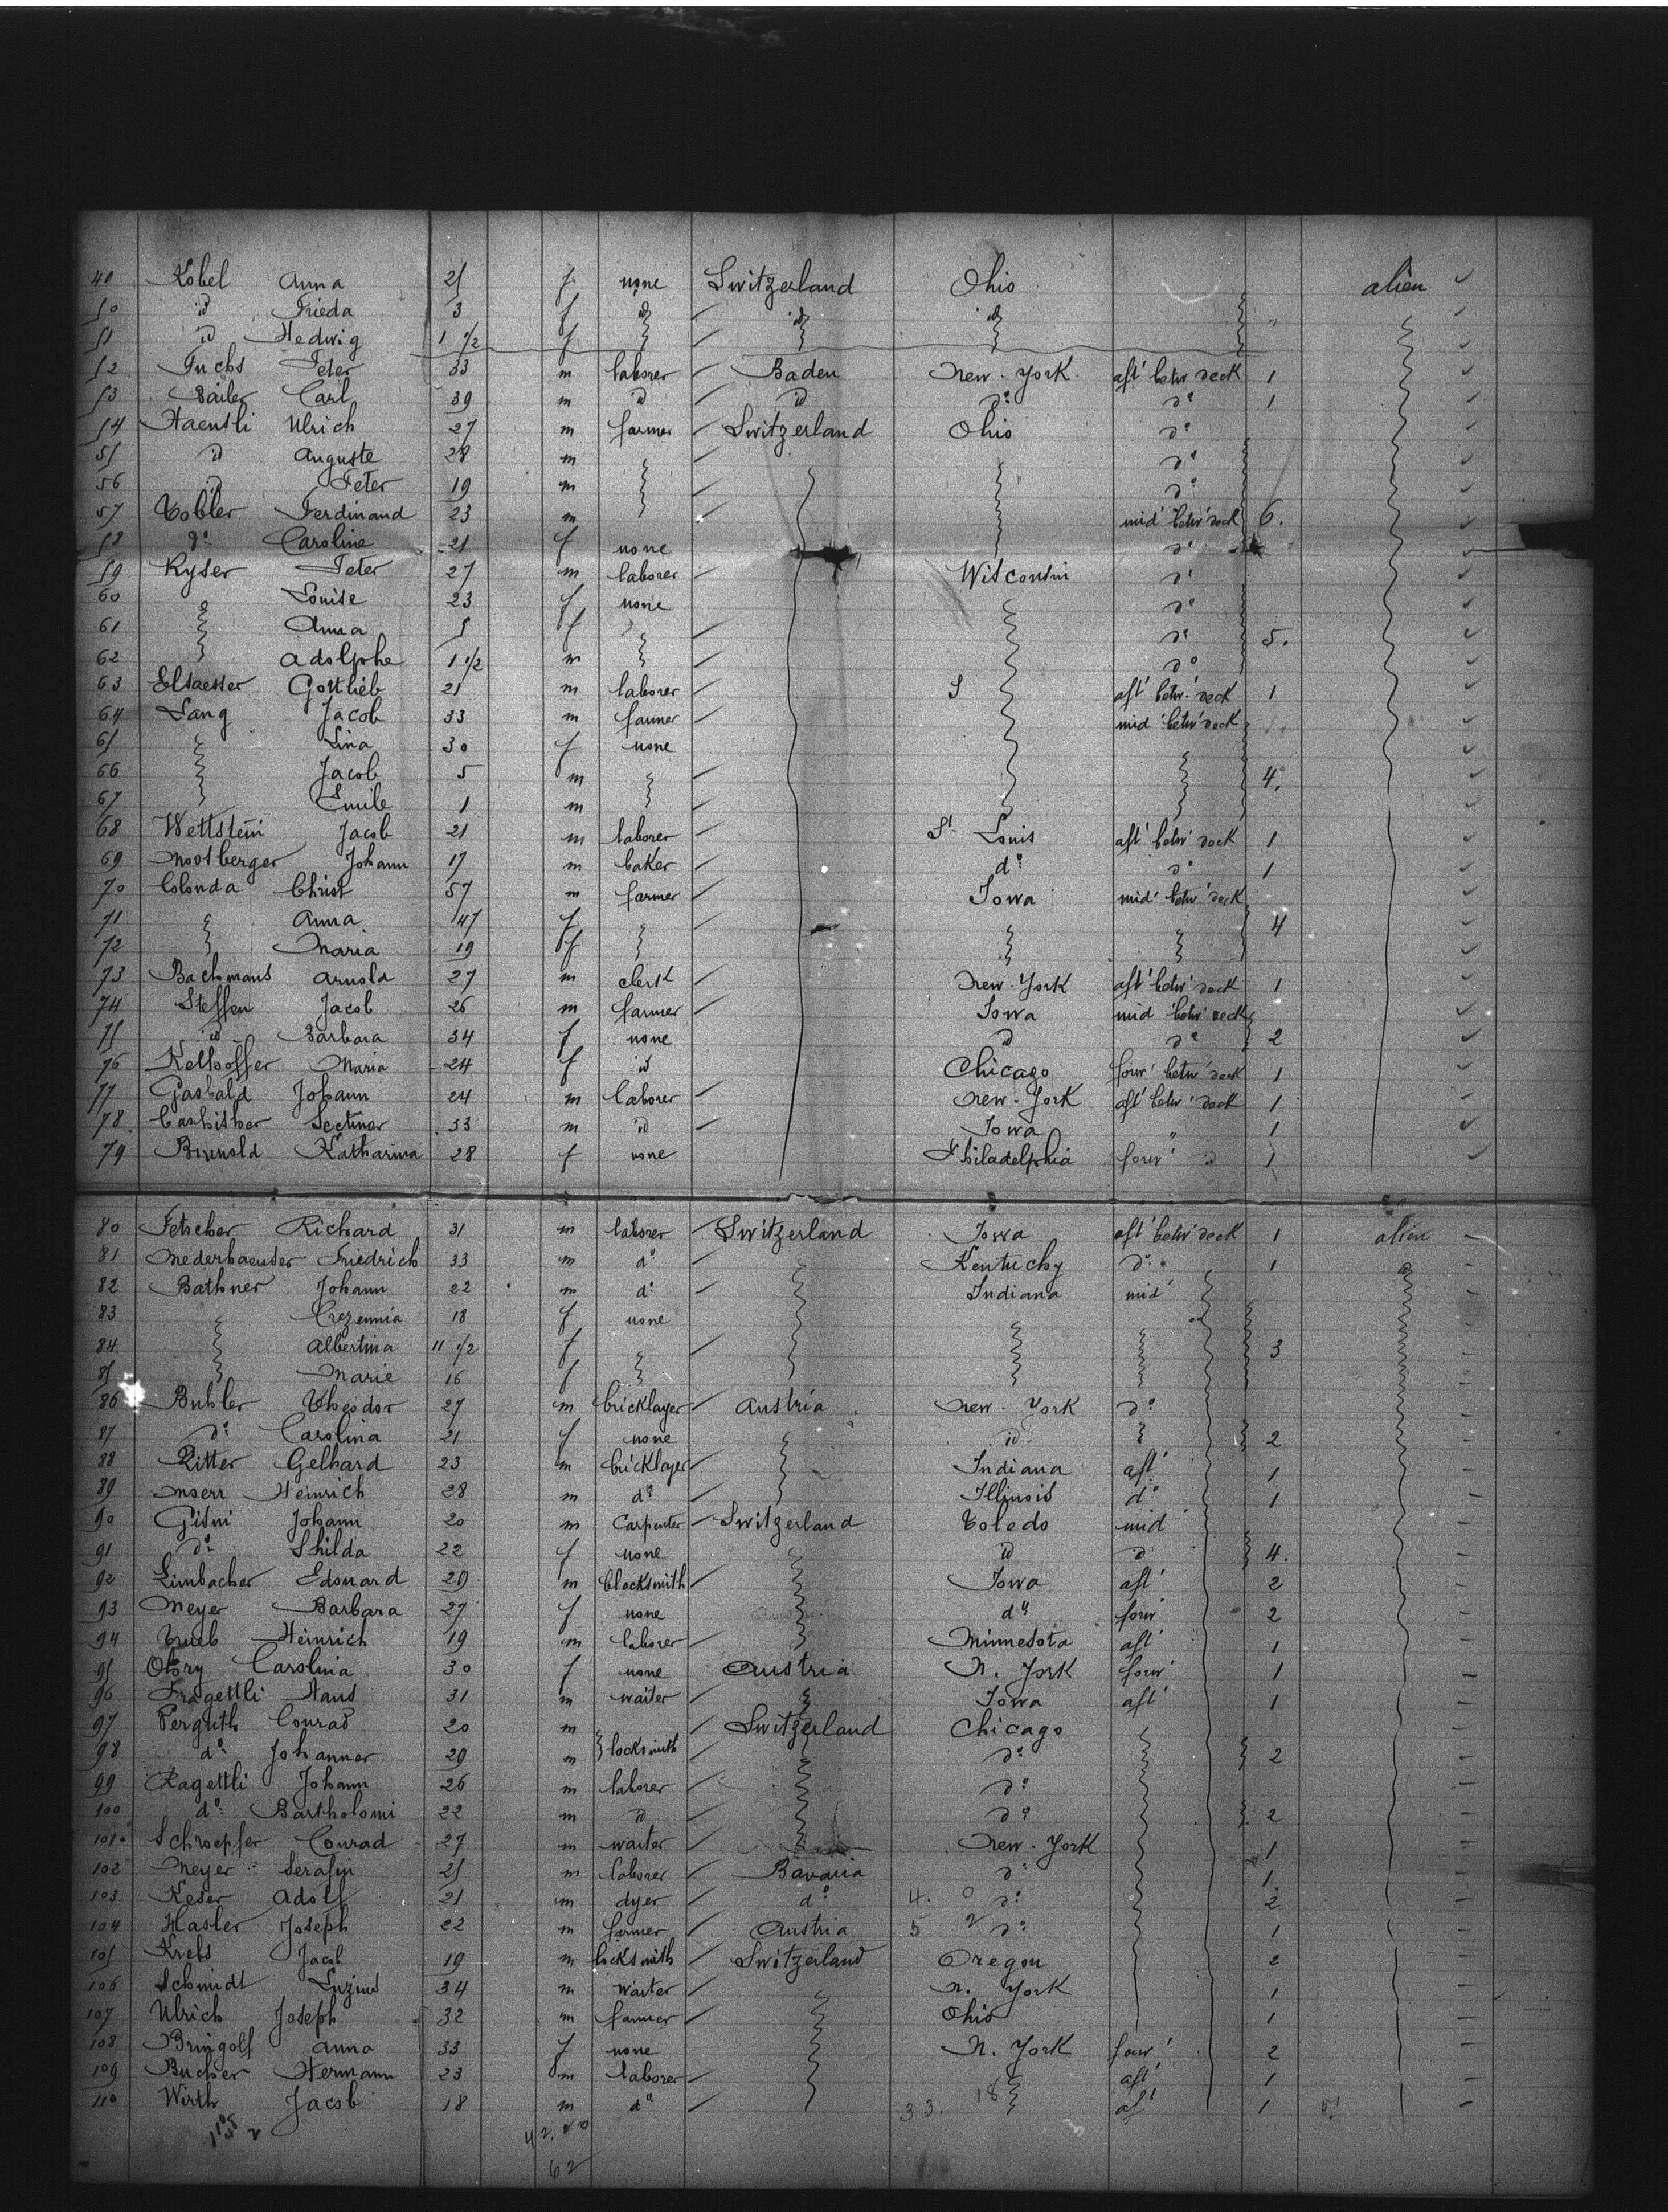 49 Kobel Anna 25 f none Switzerland Ohio alien
50 id Frieda 3 f id id id
51 id Hedwig 1 1/2 f
52 Fuchs Peter 33 m laborer Baden New-York aft' betw' deck 1
53 Bailer Carl 39 m id id d° d° 1
54 Haensli Ulrich 27 m farmer Switzerland Ohio d°
55 id Auguste 28 m d°
56 id Peter 19 m d°
57 Tobler Ferdinand 23 m mid' betw' deck 6.
58 d° Caroline 21 f none d°
59 Kyser Peter 27 m laborer Wisconsin d°
60 Louise 23 f none d°
61 Anna 5 f d° 5.
62 Adolphe 1 1/2 m d°
63 Elsaesser Gottlieb 21 m laborer aft' betw' deck 1
64 Lang Jacob 33 m farmer mid' betw' deck
65 Lina 30 f none
66 Jacob 5 m 4.
67 Emile 1 m
68 Wettstein Jacob 21 m laborer St. Louis aft' betw' deck 1
69 Moosberger Johann 17 m baker d° d° 1
70 Colonda Christ 57 m farmer Iowa mid' betw' deck
71 Anna 47 f 4
72 Maria 19 f
73 Bachmans Arnold 27 m clerk New-York aft' betw' deck 1
74 Steffen Jacob 26 m farmer Iowa mid betw' deck
75 id Barbara 34 f none d d° 2
76 Kelhoffer Maria 24 f id Chicago forw' betw' deck 1
77 Gasbald Johann 24 m laborer New-York aft' betw' deck 1
78 33 m id Iowa " 1
79 Katharina 28 f none Philadelphia forw' d 1
80 Fetscher Richard 31 m laborer Switzerland Iowa aft' betw' deck 1 alien
81 Nederhaeuser Friedrich 33 m d° Kentucky d° 1
82 Bathner Johann 22 m d° Indiana mid'
83 Crezennia 18 f none
84 Albertina 11 1/2 f 3
85 Marie 16 f
86 Buhler Theodor 27 m bricklayer Austria New-York d°
87 d° Carolina 21 f none id 2
88 Ritter Gelhard 23 m bricklayer Indiana aft' 1
89 Moser Heinrich 28 m d° Illinois d° 1
90 Gisni Johann 20 m Carpenter Switzerland Toledo mid'
91 d° Shilda 22 f none id d 4.
92 Limbacher Edouard 29 m blacksmith Iowa aft' 2
93 Meyer Barbara 27 f none d° forw' 2
94 Heinrich 19 m laborer Minnesota aft' 1
95 Carolina 30 f none Austria N. York forw' 1
96 Fragettli Hans 31 m waiter Iowa aft' 1
97 Perguth Conrad 20 m Switzerland Chicago
98 d° Johanner 29 m locksmith d° 2
99 Ragettli Johann 26 m laborer d°
100 d° Bartholomi 22 m id d° 2
101 Schroepfer Conrad 27 m waiter New-York 1
102 Meyer Serafin 25 m laborer Bavaria d° 1
103 Keser Adolf 21 m dyer d° 4. 0 d° 2
104 Hasler Joseph 22 m farmer Austria 5 2 d° 1
105 Krebs Jacob 19 m locksmith Switzerland Oregon 2
106 Schmidt Luzius 34 m waiter N. York 1
107 Ulrich Joseph 32 m farmer Ohio 1
108 Bringolf Anna 33 f none N. York forw' 2
109 Bucher Hermann 23 m laborer aft' 1
110 Wirth Jacob 18 m d° 33. 18 aft' 1
62